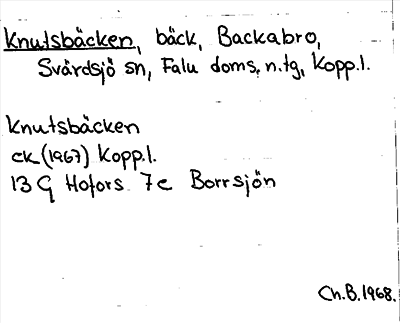 Knutsbäcken, bäck, Backabro,
Svärdsjö sn, Falu doms. n. tg, Kopp. l.
Knutsbäcken
ek (1967) Kopp. l.
13 G Hofors 7c Borrsjön
Ch. B. 1968.